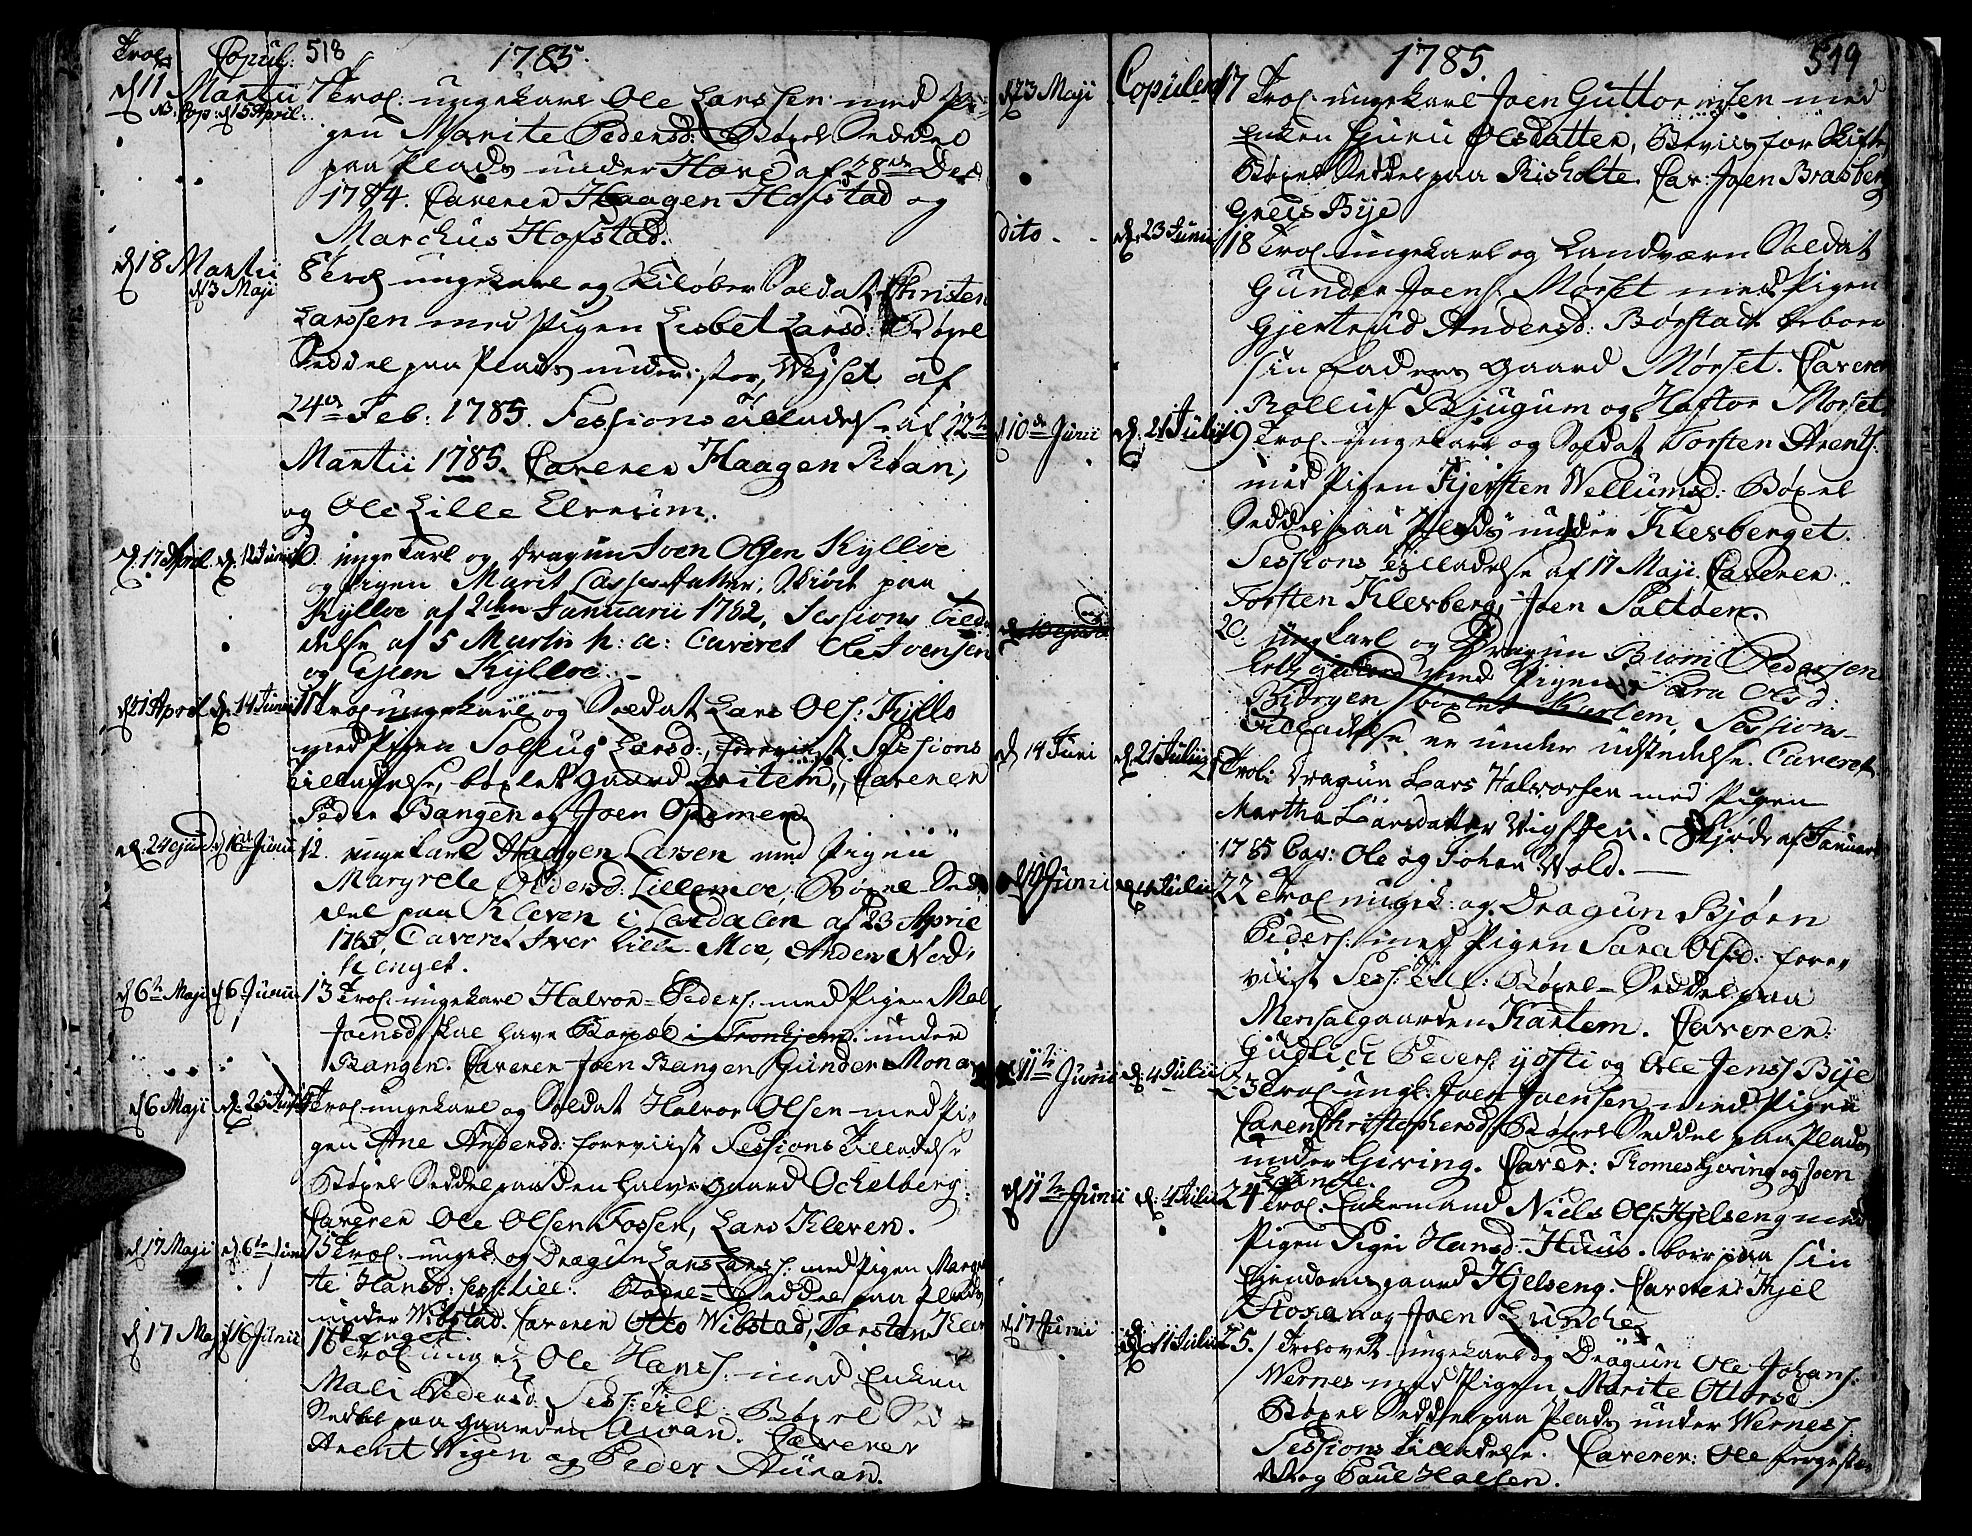 Trol. Copul: 518 1785.
d 11 Martii 7 Trol: ungekarl Ole Larssen med Pi-
N: Cop: d 15 April.
gen Marite Pedersd: Bøxel Seddel
paa Plads under Have af 28de Dec
1784. Caverer Haagen Hofstad og
Marchus Hofstad.
d 18 Martii 8 Trol ungekarl og Skiløber Soldat Christen
d 13 Maji
Larssen med Pigen Lisbet Larsd: Bøxel
Seddel paa Plads under, Wejset af
24de Feb: 1785. Sessions tilladelse af 12te
Martii 1785. Caverer Haagen Roan,
og Ole Lille Elverum.
d. 17 April. d. 12 Junii ungekarl og Dragun Joen Olsen Kylloe
og Pigen Marit Lassesdatter, Skiøte paa
Kylloe af 2den Januarii 1782, Sessions Tilla-
delse af 5 Martii h: a: Caveret Ole Joensen
og Esten Kylloe.
d 21 April d. 14 Junii 11 Trol ungekarl og Soldat Lars Ols: Kyllo
med Pigen Sollug Larsd: foreviist Sessions
tilladelse, bøxlet gaard Qvitem, Caverer
Peder Bangen og Joen Opemen.
d. 24 ejusd. d 16 Junii 12. ungekarl Haagen Larsen med Pigen
Margrete Oldersd: Lillemoe, Bøxel-Sed-
del paa Kleven i Lexdalen af 23 April
1785, Caveret Iver Lille-Moe, Anders Ned-
henget.
d 6te Maji d 6 Junii 13 Trol: ungekarl Halvor Peders: med Pigen Mal
Joensd, skal have Bøxel i Tronhjem under
Bangen. Caverer Joen Bangen Gunder Mona
d 6 Maji d. 23 Trol: ungekarl og Soldat Halvor Olsen med Pi-
gen Ane Andersd: foreviist Sessions Tilladelse
Bøxel Seddel paa den halve gaard Ochelberg.
Caverer Ole Olsen Fossen, Lars Kleven.
d 17 Maji d. 6te Juni 15 Trol: ungek: og Dragun Lars Larss: med Pigen Marg
te Hansd: Sess: till: Bøxel-Seddel paa Plads
under Wibstad. Caverer Otto Wibstad, Torsten Kler
enget.
d 17 Maj d 16 Junii 16 Trol ung k Ole Hanss: med Enken
Mali Pedersd: Sess: till: Bøxel Sed
Seddel paa gaarden Auran. Caverer
Arent Wigen og Peder Auran.
1785. 519
d 23 Maji Copulered 17 Trol: ungekarl Joen Guttormsen med
Enken Guru Olsdatter, Beviis for Skifte
Bøxel Seddel paa Risholte. Cav: Joen Brasberg
Greis Bye
dito - - d. 23 Junii 18 Trol ungekarl og Landværn Soldat
Gunder Joens: Mørset med Pigen
Gjertrud Andersd: Borstad beboer
sin Faders gaard Mørset. Caverer
Rolluf Bjugum og Haftor Morset
d 10de Junii d. 21 Julii 19 Trol. ungekarl og Soldat Torsten Arents:
med Pigen Kjersten Wellumsd: Bøxel
Seddel paa Plads under Klesberget.
Sessions tilladelse af 17 Maji. Caverer
Torsten Klesberg, Joen Saltøen.
d 10 ejusd 20. ungkarl og Dragun Biørn Pedersen
med Pigen Sara Olsd:
Biørgen bøxlet Kartem, Sessions-
Tilladelse er under udstedelse. Caveret
d 14 Juni d. 21 Julii 21 Trol: Dragun Lars Halvorsen med Pigen
Martha Larsdatter Wigssen. Skjøde af Januar
1785 Cav: Ole og Johan Wold.
d 10 Junii d. 4 Julii 22 Trol ungk: og Dragun Bjørn
Peders: med Pigen Sara Olsd: fore-
viist Sess: till: Bøxel-Seddel paa
Mensalgaarden Kartem. Caverer:
Gudlich Peders: ysti og Ole Jenss Bye
d 11te Junii d. 4 Julii 23 Trol: ungk: Joen Joensen med Pigen
Caren Christophersd: Bøxel Seddel paa Plads
under Geving. Caver: Thomes Geving og Joen
d 11te Junii d. 4 Julii 24 Trol. Enkemand Niels Ols: Hjelseng med
Pigen Sigri Hansd: Huus. boer paa sin
Eyendoms gaard Hjelseng. Caverer: Kjel
Stoxan og Joen Lunche.
d 17 Junii d. 11 Julii 25. Trolovet ungekarl og Dragun Ole Johans:
Wernes med Pigen Marite Ottersd:
Bøxel Seddel paa Plads under Werness:
Sessions tilladelse. Caverer: Ole
og Paul Halsen.